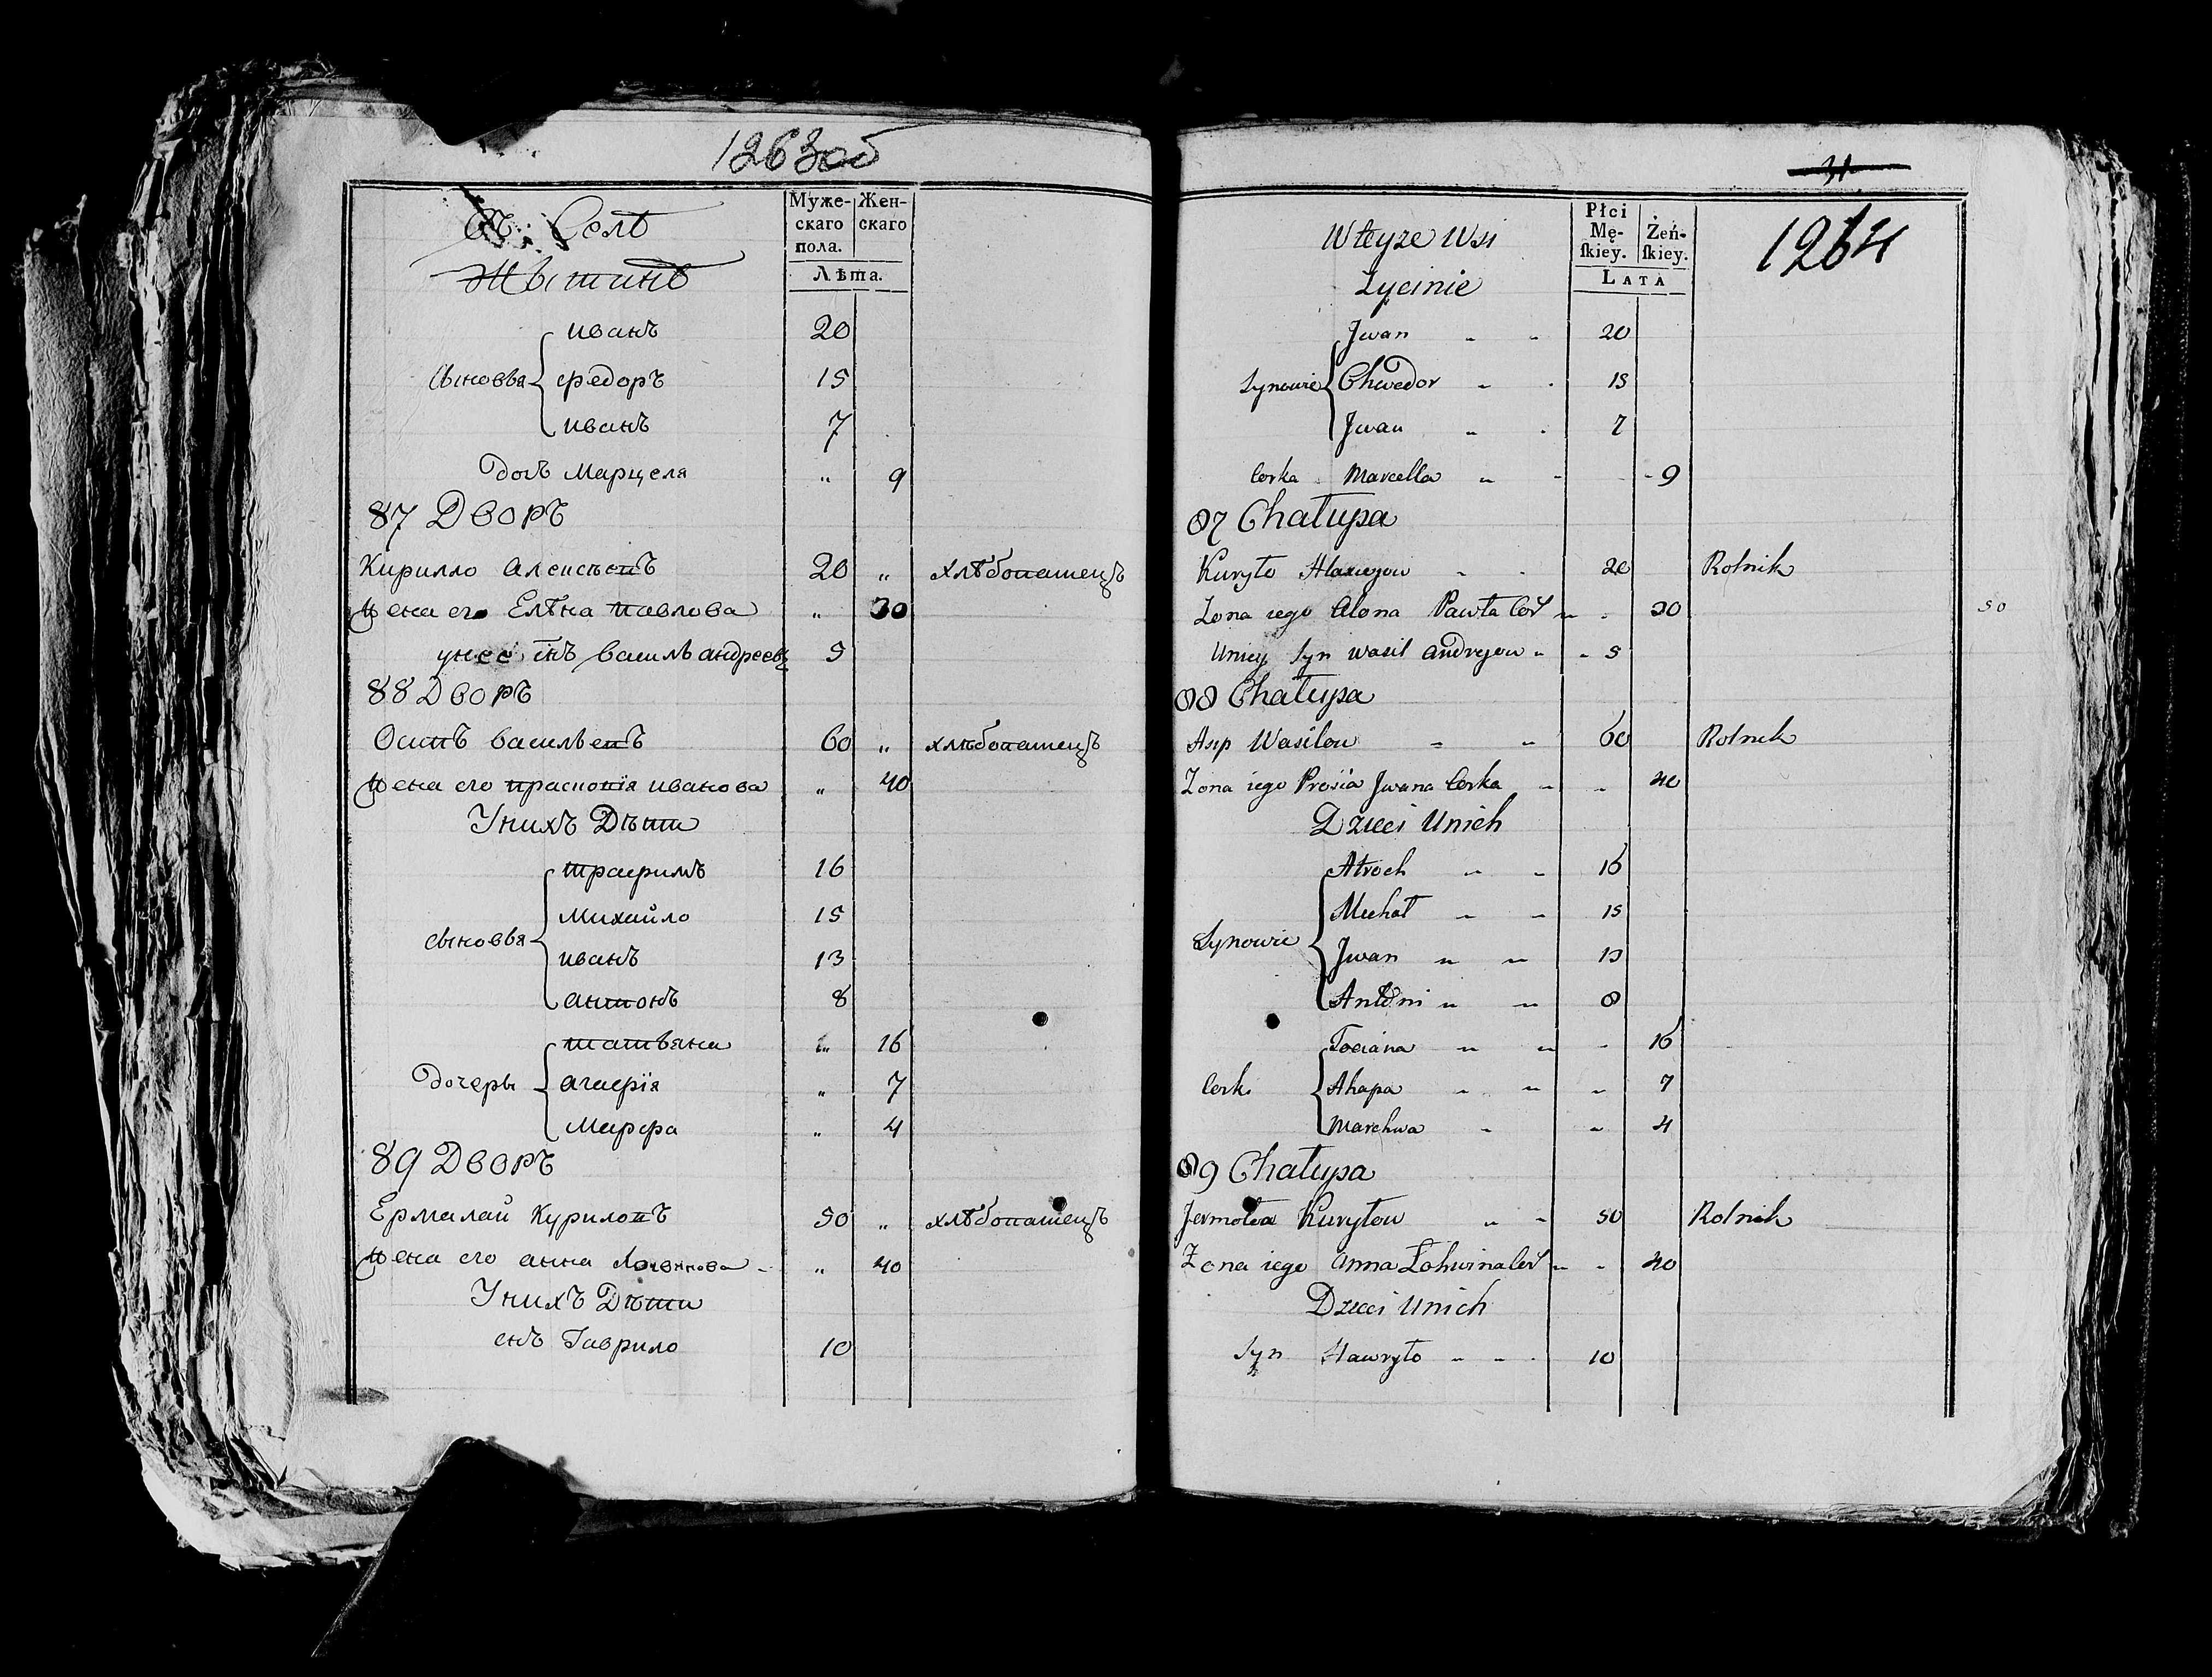 1263об
Въ Селѣ
Жытинѣ
Муже-
скаго
пола.
Жен-
скаго
Лѣта.
иванъ 20
сыновья федоръ 15
иванъ 7
дочь Марцеля " 9
87 Дворъ
Кирилло Алексеепъ 20 " хлѣбопашецъ
Жена его Елѣна павлова " 30
унее снъ василь андреевъ 5
88 Дворъ
Осипъ васильепъ 60 " хлѣбопашецъ
Жена его праскопія иванова " 40
Унихъ Дѣти
трафимъ 16
Михайло 15
сыновья
иванъ 13
антонъ 8
татьяна " 16
Дочеры агафія " 7
Марфа " 4
89 Дворъ
Ермалай Курилопъ 50 " хлѣбопашецъ
Жена его анна " 40
Унихъ Дѣти
снъ Гаврило 10
31
1264
Wteyze Wsi
Zycinie
Płci
Mę-
skiey.
Żeń-
skiey.
LATA
Jwan " " 20
Synowie Chwedor " 15
Jwan " 7
Corka Marcella " 9
87 Chałupa
Kuryło 20 Rolnik
Zona iego Alona Pawła Cor " 30
50
Uniey Syn Wasil Andreyow " 5
88 Chałupa
Asip Wasilow " " 60 Rolnik
Zona iego Prosia Jwana Corka " " 40
Dzieci Unich
Atroch " " 16
Michał " " 15
Synowie
Jwan " " 13
Antoni " " 8
Taciana " " 16
Cork. Ahapa " " " 7
Marchwa " " 4
89 Chałupa
Kuryłow " 50 Rolnik
Zona iego Anna Łohwina Cor " 40
Dzieci Unich
Syn Hawryło " " 10